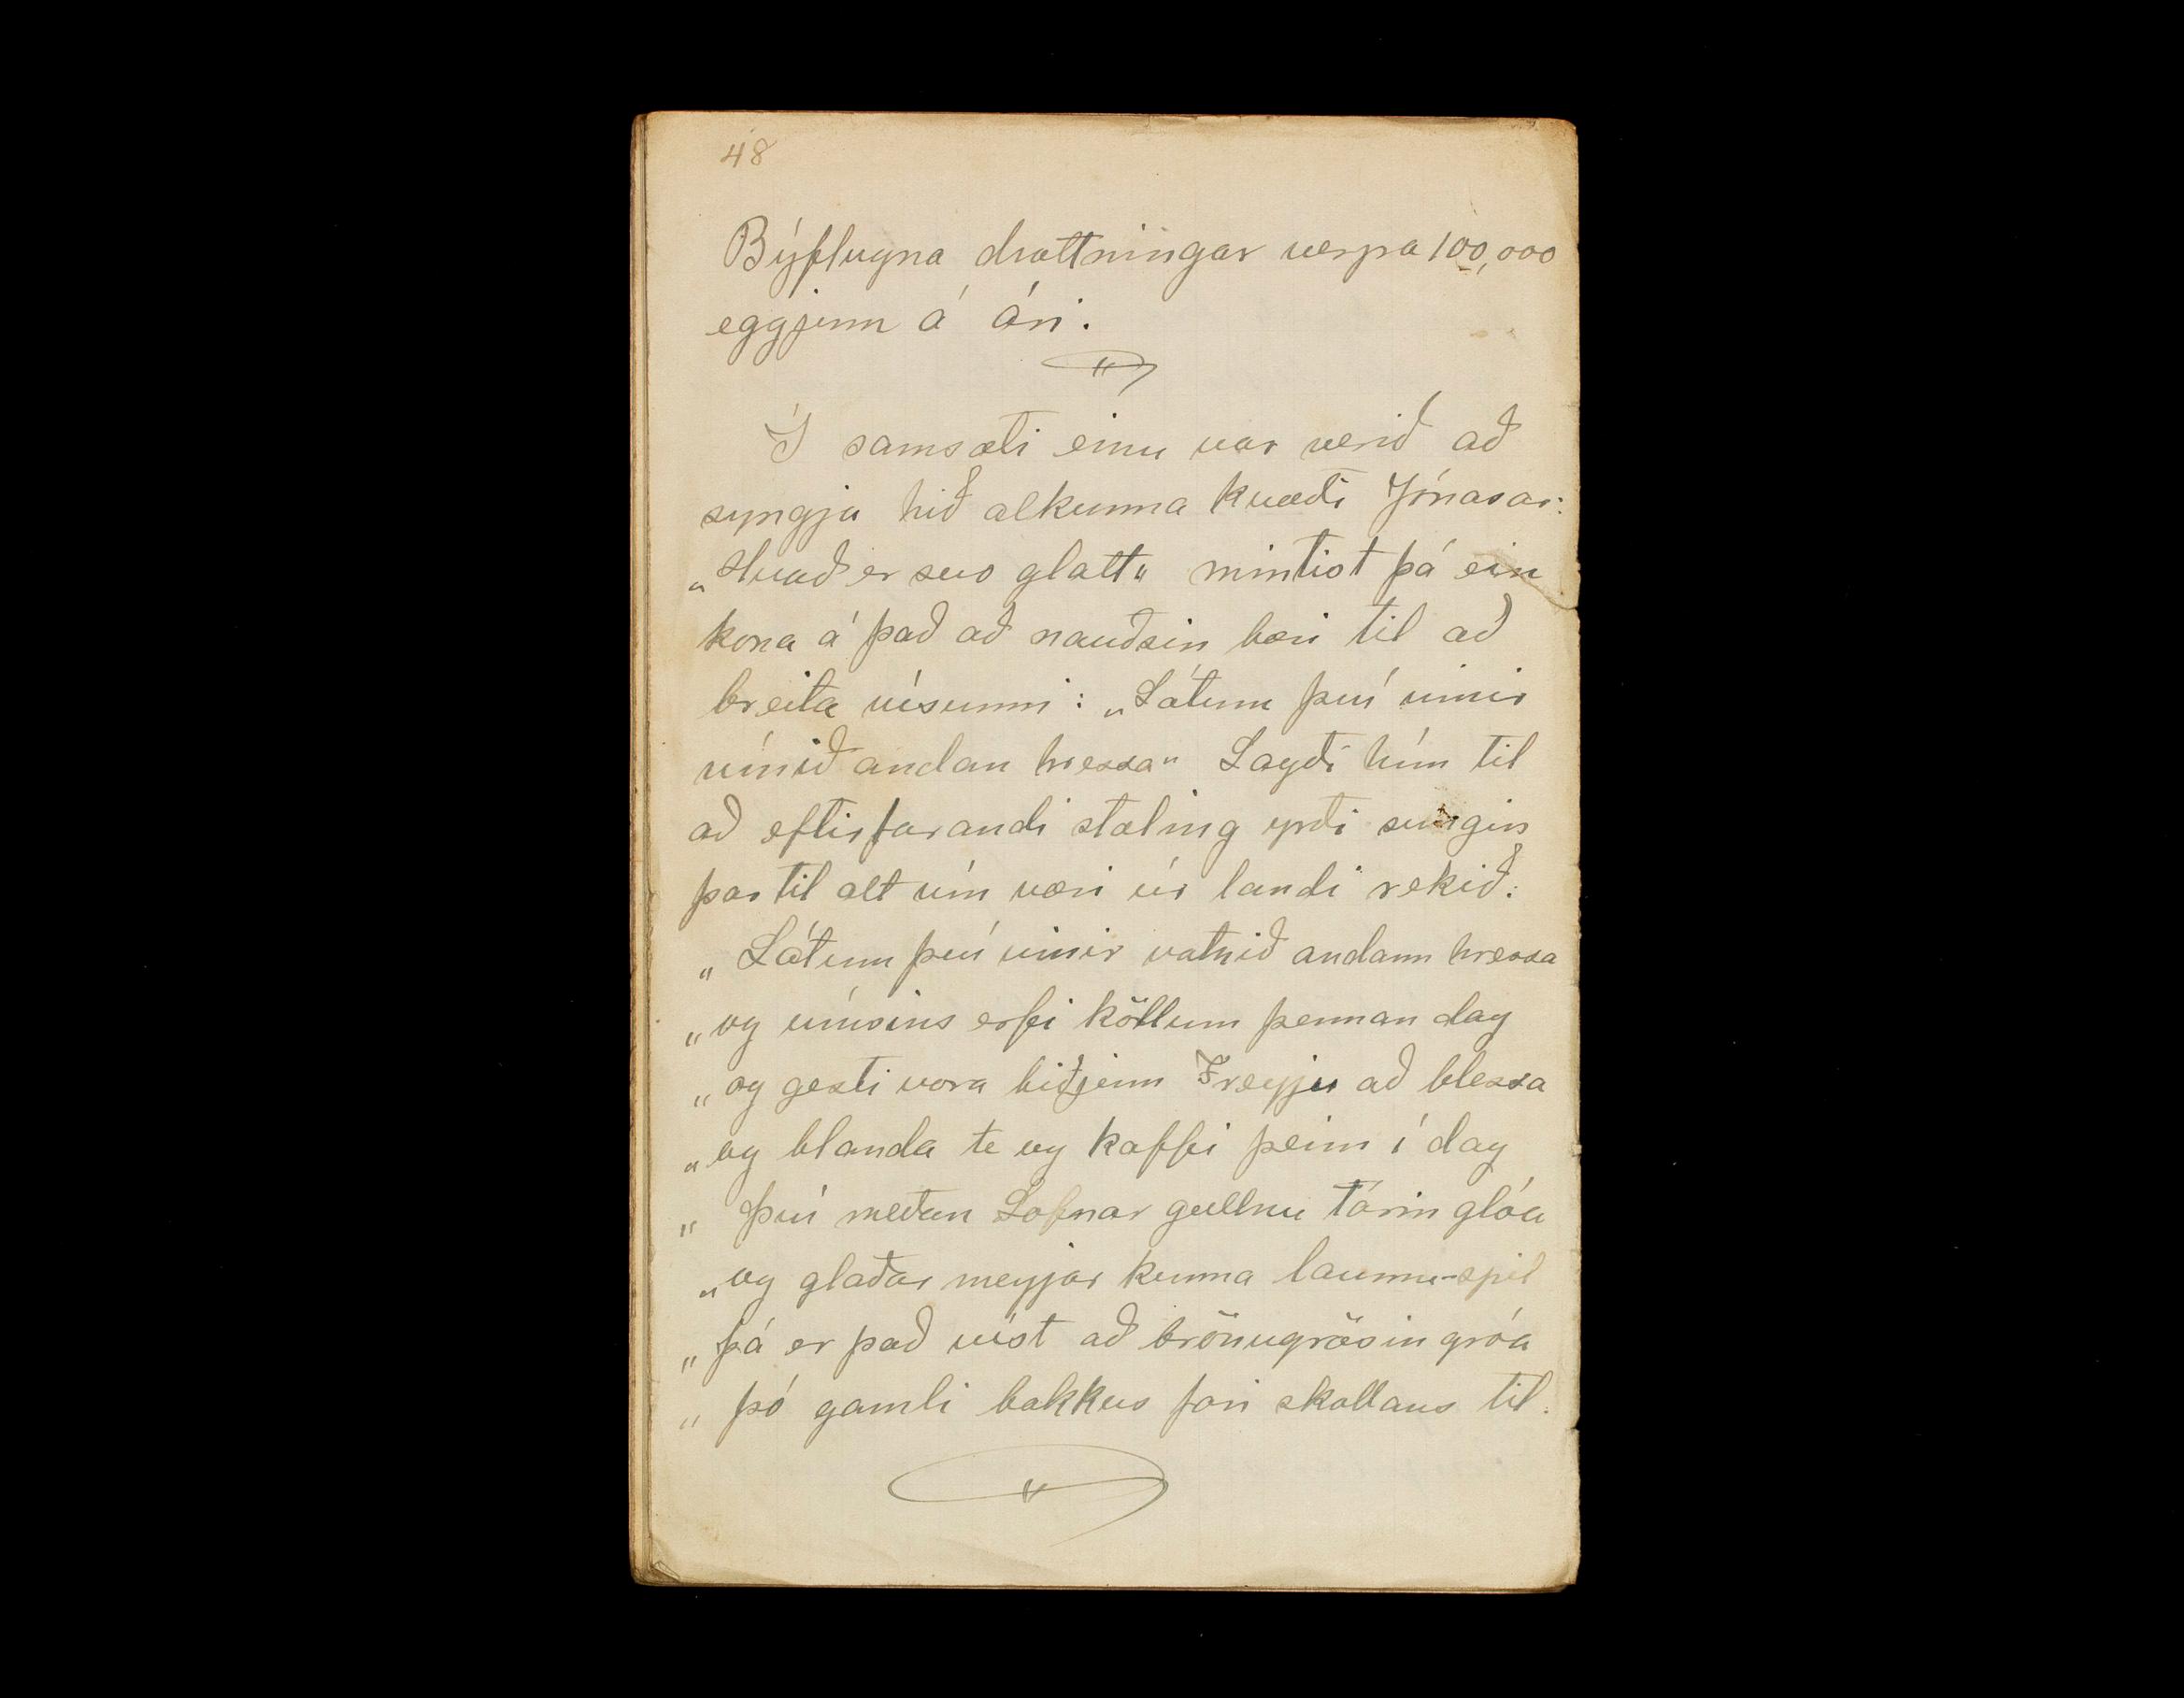 48
Býflugna drottningar verpa 100,000
eggjum á ári.
Í samsæti einu var verið að
syngja hið alkunna kvæði Jónasar:
„Hvað er svo glatt" mintist þá ein
kona á það að nauðsin bæri til að
breita vísunni: „Látum því vinir
vínið andan hressa" Lagði hún til
að eftirfarandi stæling yrði sungin
þar til alt vín væri úr landi rekið:
„Látum því vinir vatnið andann hressa
„og vínsins erfi köllum þennan dag
„og gesti vora biðjum Freyju að blessa
„og blanda te og kaffi þeim í dag
„Því meðan Lofnar gullnu tárin glóa
„og glaðar meyjar kunna launu-spil
„þá er það víst að brönugrösin gróa
„þó gamli bakkus fari skollans til.